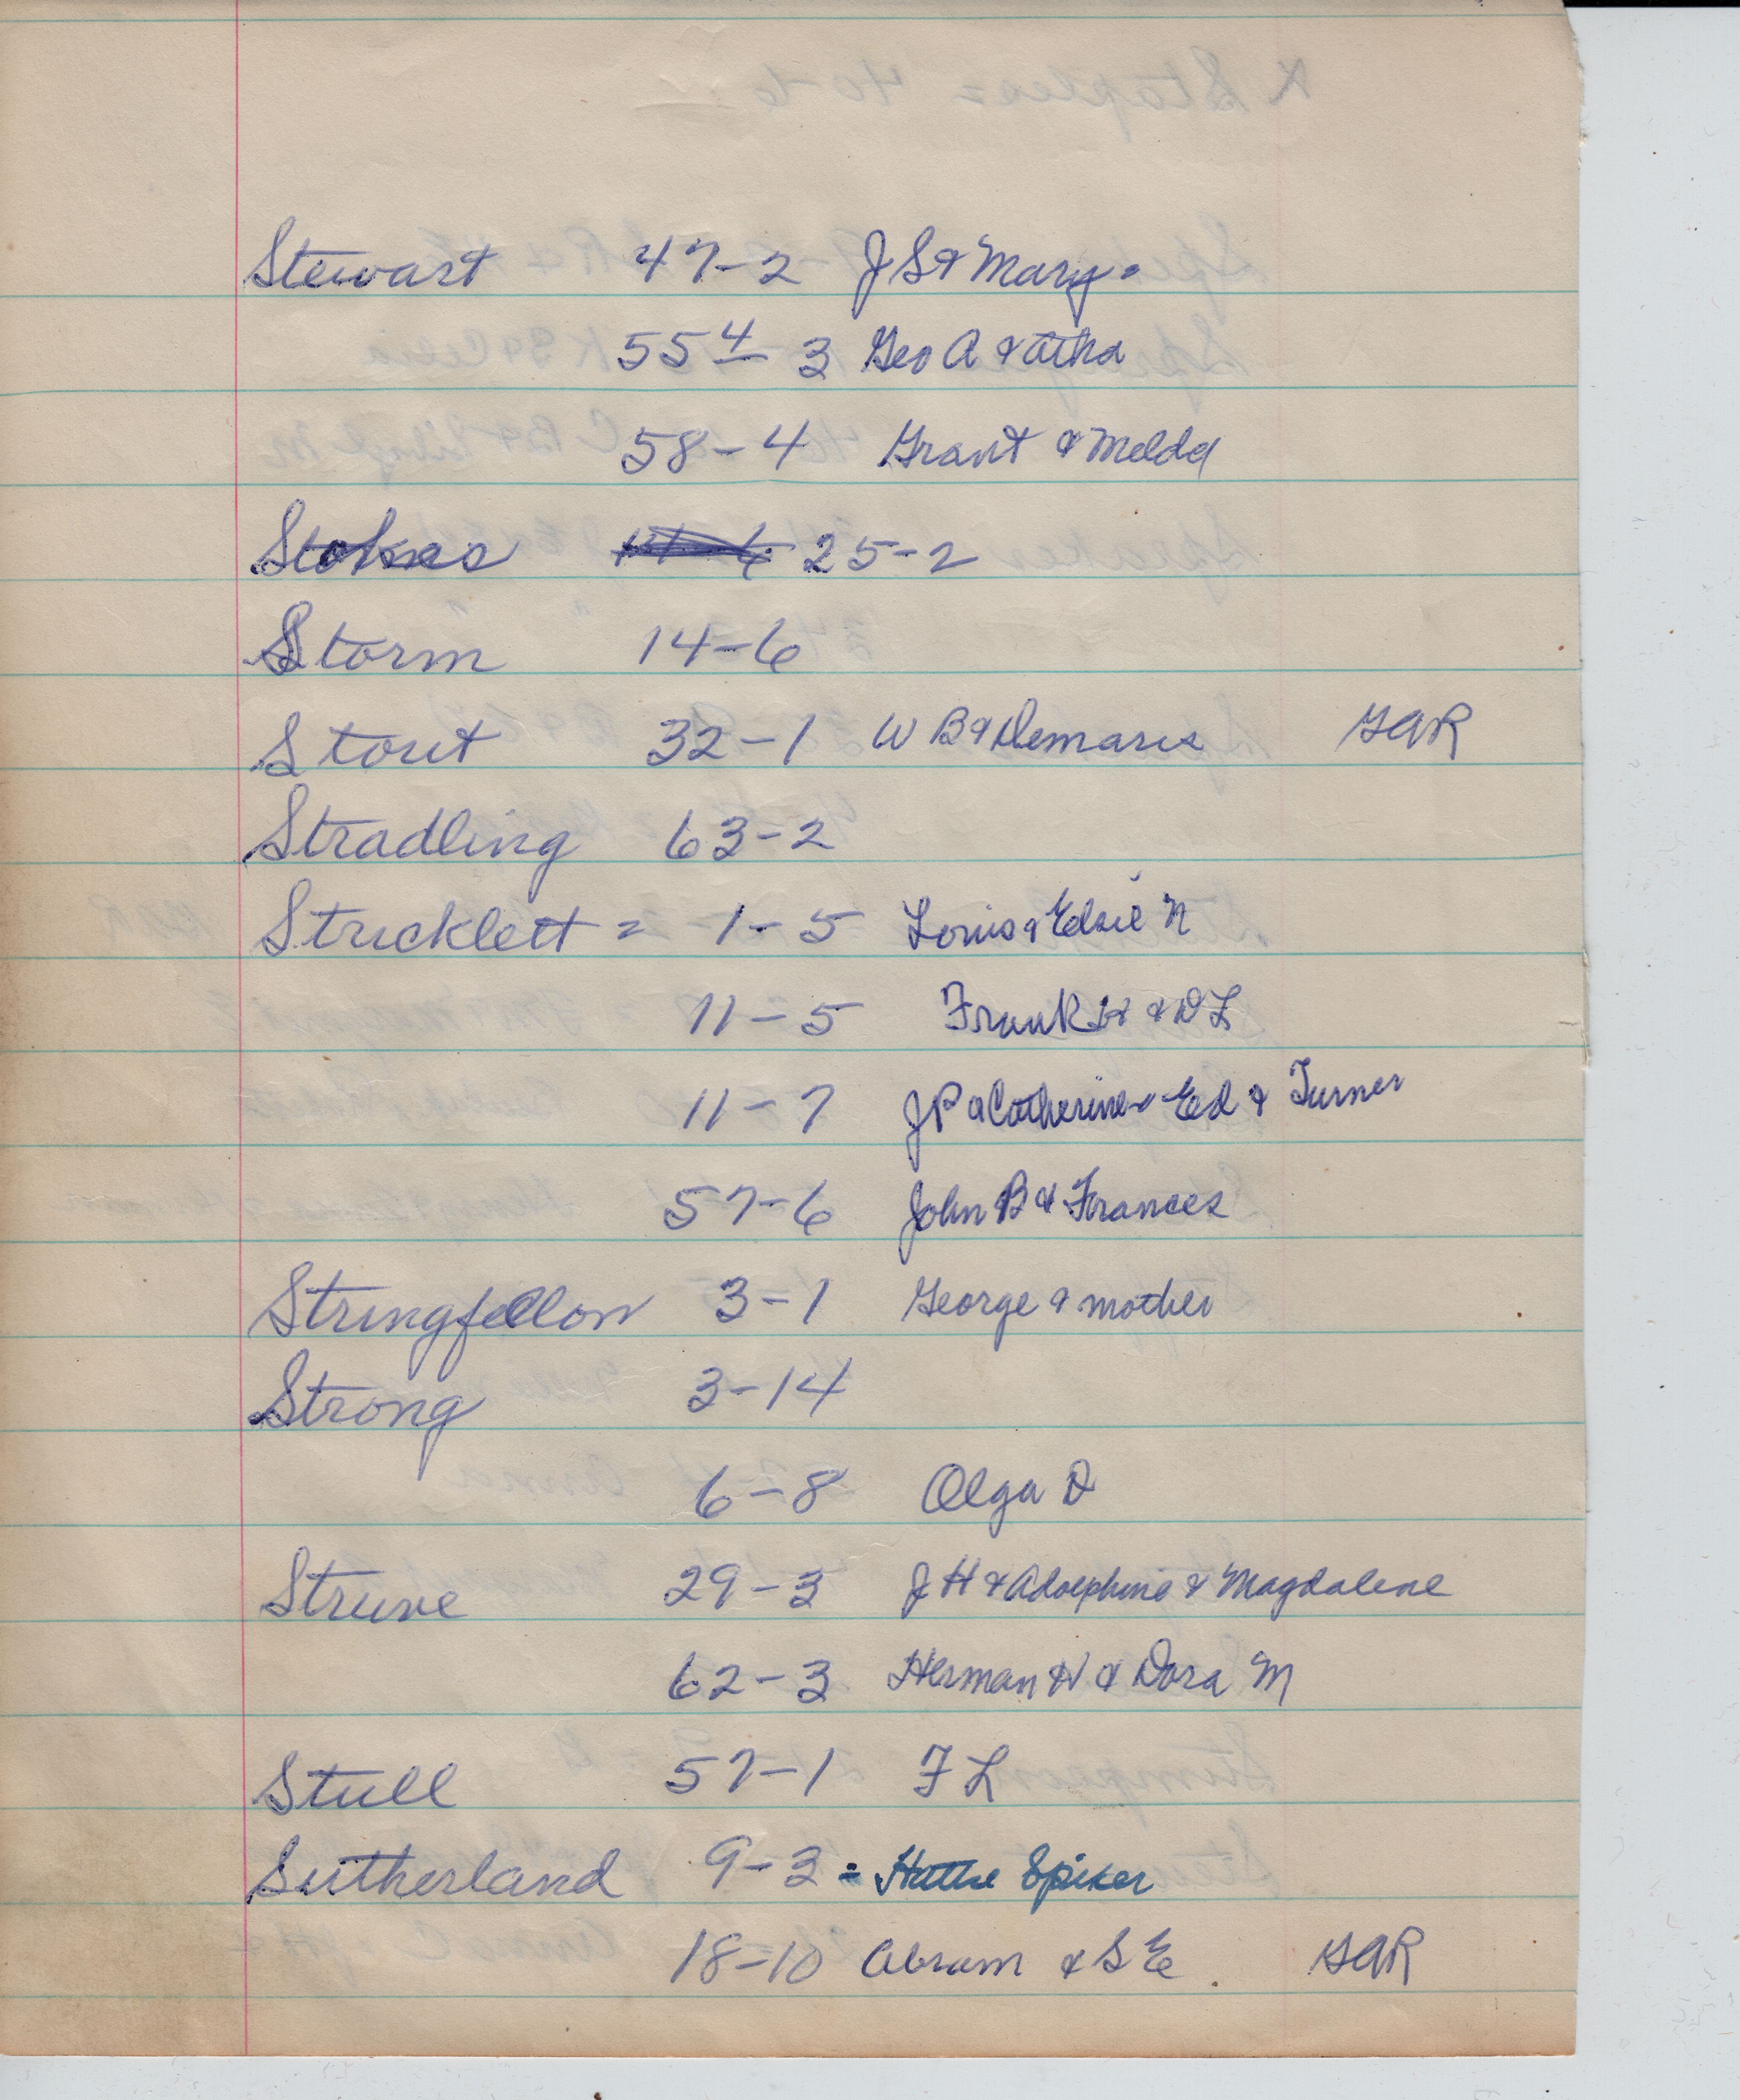 Stewart 47-2 J S & Mary
55 4 - 3 Geo A & Atha
58-4 Grant & Melda
Stokes 25-2
Storm 14-6
Stout 32-1 W B & Demaris GAR
Stradling 63-2
Stricklett = 1-5 Louis & Elsie N
11-5 Frank H & D L
11-7 J P & Catherine & Ed & Turner
57-6 John B & Frances
Stringfellow 3-1 George & mother
Strong 3-14
6-8 Olga D
Struve 29-3 J H & Adolphine & Magdalene
62-3 Herman H & Dora M
Stull 57-1 F L
Sutherland 9-3 = Hattie Spiker
18-10 Abram & S E. GAR